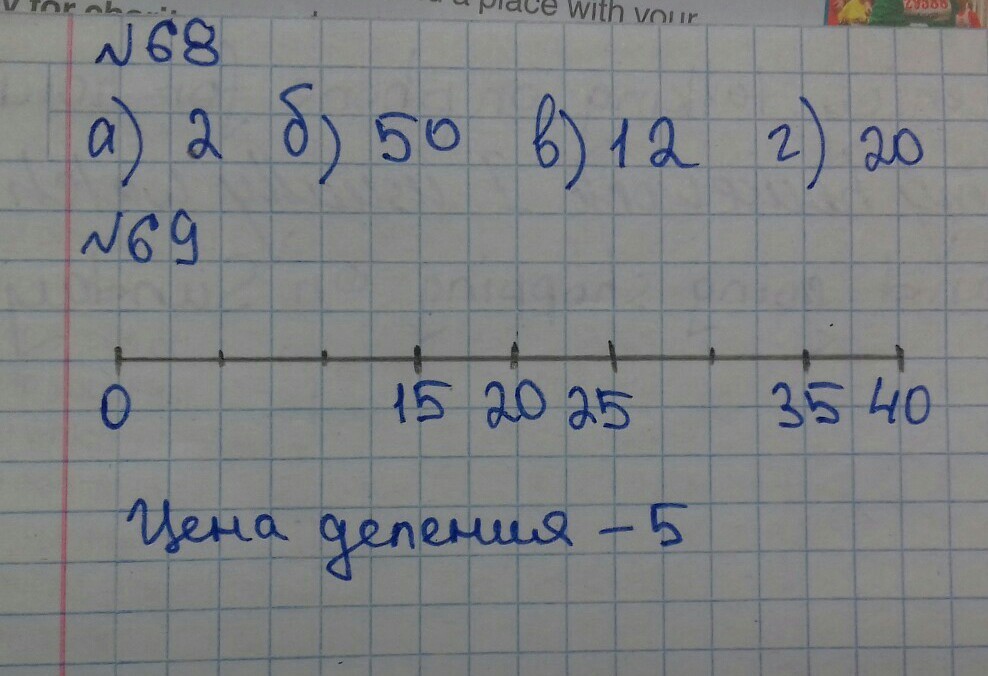 a place with your
№68
а) 2 б) 50 в) 12 г) 20
№69
0 15 20 25 35 40
Цена деления – 5